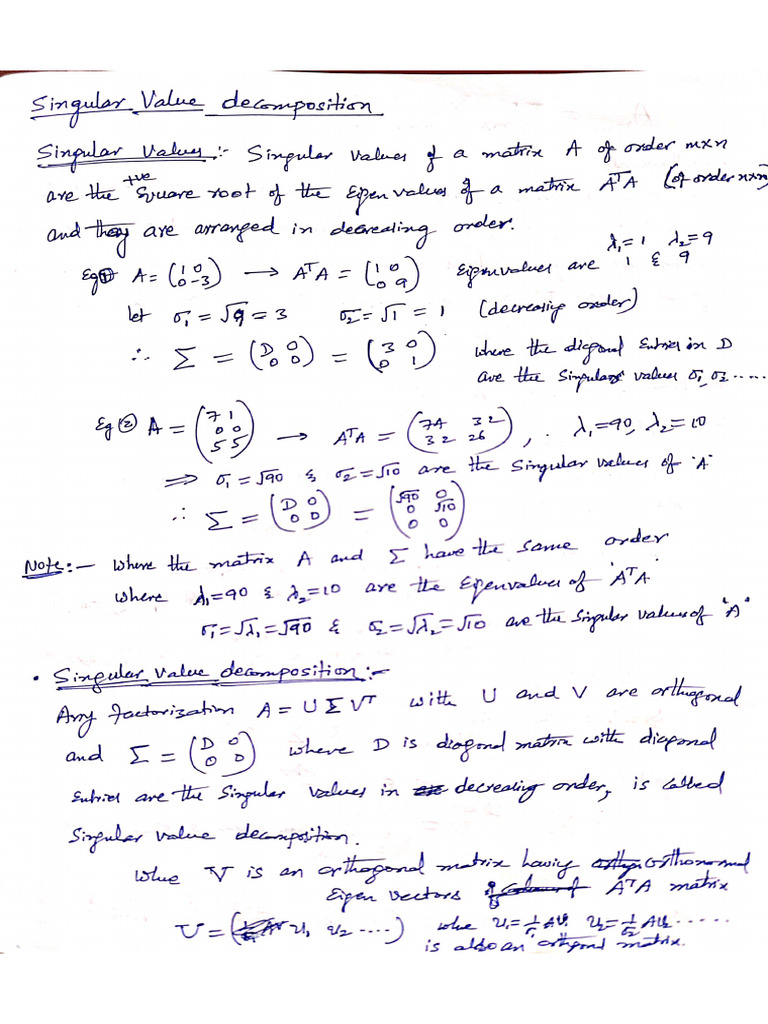 Singular Value decomposition
Singular Values:- Singular values of a matrix A of order m×n
are the +ve square root of the Eigen values of a matrix AᵀA (of order n×n)
and they are arranged in decreasing order.
Eg① A = (1 0; 0 -3) → AᵀA = (1 0; 0 9) Eigenvalues are λ₁=1 λ₂=9 1 & 9
let σ₁ = √9 = 3 σ₂ = √1 = 1 (decreasing order)
∴ Σ = (D 0; 0 0) = (3 0; 0 1) where the diagonal Entries in D
are the singular values σ₁, σ₂ .....
Eg② A = (7 1; 0 0; 5 5) → AᵀA = (74 32; 32 26), . λ₁=90, λ₂=10
⇒ σ₁ = √90 & σ₂ = √10 are the singular values of 'A'
∴ Σ = (D 0; 0 0) = (√90 0; 0 √10; 0 0)
Note:- Where the matrix A and Σ have the same order
where λ₁=90 & λ₂=10 are the Eigenvalues of 'AᵀA'
σ₁=√λ₁=√90 & σ₂=√λ₂=√10 are the singular values of 'A'
• Singular value decomposition:-
Any factorization A = U Σ Vᵀ with U and V are orthogonal
and Σ = (D 0; 0 0) where D is diagonal matrix with diagonal
Entries are the singular values in decreasing order, is called
singular value decomposition.
Whue V is an orthogonal matrix having orthonormal
Eigen vectors of AᵀA matrix
U = (u₁, u₂ ....) whe u₁=1/σ₁ Av₁ u₂=1/σ₂ Av₂ ......
is also an orthogonal matrix.